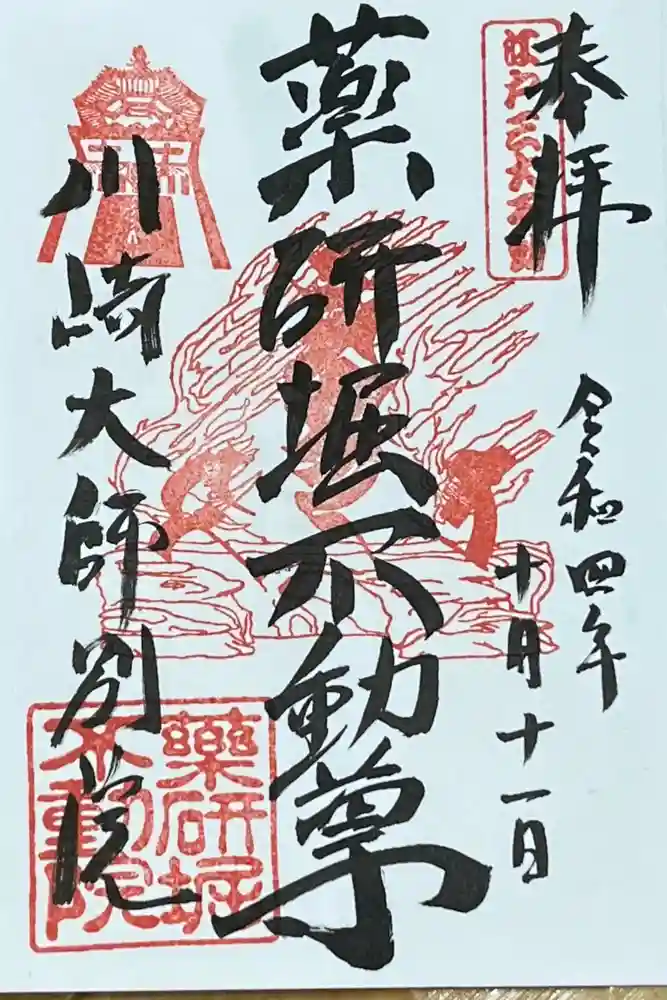 奉拝
江戸三大不動
令和四年
十月十一日
薬研堀不動尊
川崎大師別院
薬研堀
不動院